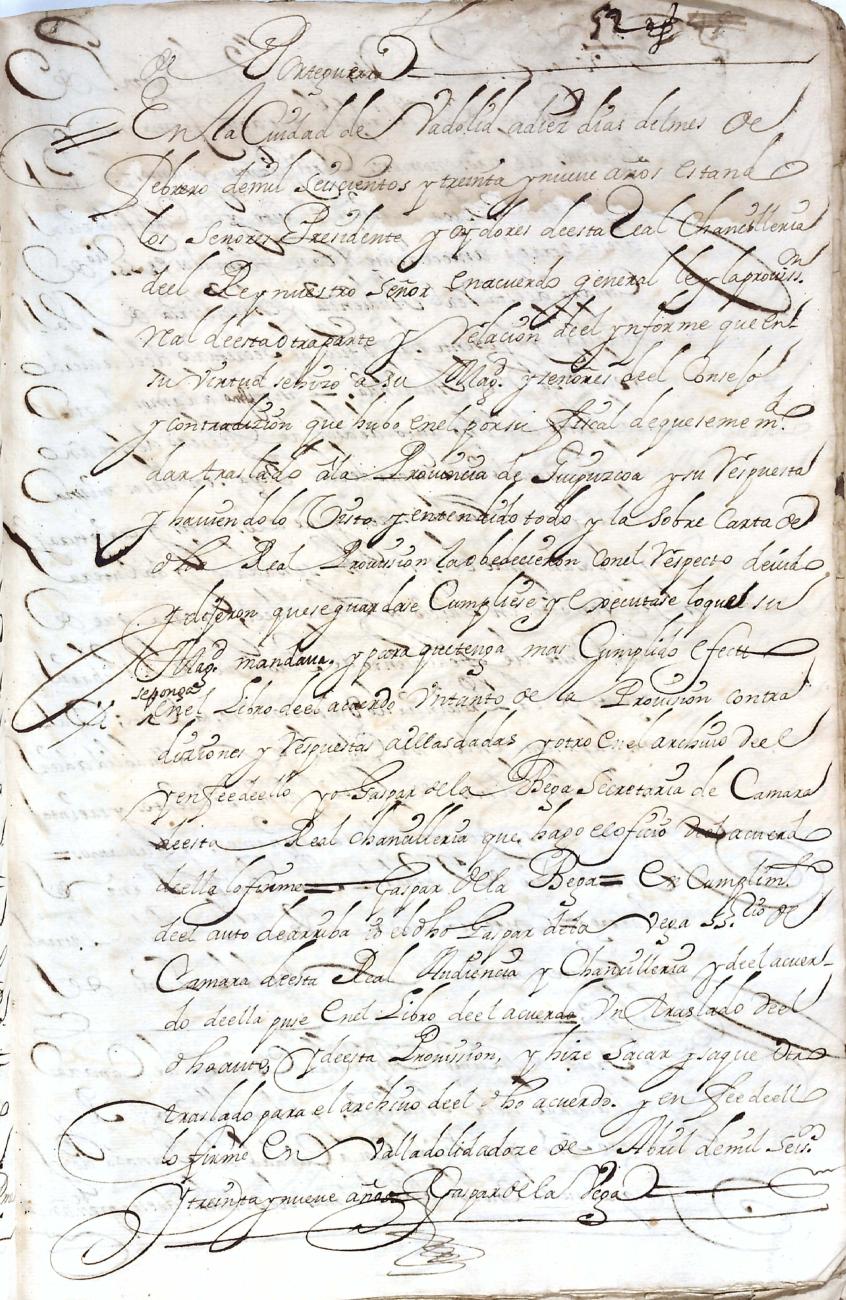 52
de Orteguera
En la Ciudad de Vadolid adiez dias delmes de
febrero demil Seiscientos ytreinta ynueve años estand
los Señores Presidente y oydores deesta Real Chancilleria
deel Rey nuestro Señor enacuerdo general ley laprovisson
Real deesta otra parte y Relacion deel ynforme que ent
su virtud sehizo a su Magd. y señores deel Consejo
y contradizion que hubo enel porsu fiscal dequesemem.d
dar traslado ala Provincia de Guipuzcoa ysu Respuesta
y haviendolo Visto y entendido todo y la Sobre Carta de
dha Real Provision laobedecieron conel Respecto devido
y dijeron queseguardase Cumpliese y executase loquel su
Magd. mandava, ypara quetenga mas Cumplido efecto
seponga
enel Libro deel acuerdo Untanto de la Provision contra
diziones y Respuestas aellasdadas yotro enel archivo deel
yenfeedeello yo Gaspar dela Bega Secretario de Camara
deesta Real Chancilleria que hago eloficio delacuerd
deella lofirme = Gaspar dela Bega = En Cumplimto.
deel auto dearriba io eldho Gaspar dela Vega SS.rio de
Camara deesta Real Audiencia y Chancilleria ydeelacuer-
do deella puse Enel Libro deel acuerdo Un traslado deel
dhoauto, ydeesta Provission, y hize Sacar ysaque otro
traslado para el archivo deel dho acuerdo. y en feedeell
lo firme En Valladolidadoze de Abril demil Seis.os
ytreinta ynueve años = Gaspar de la Vega